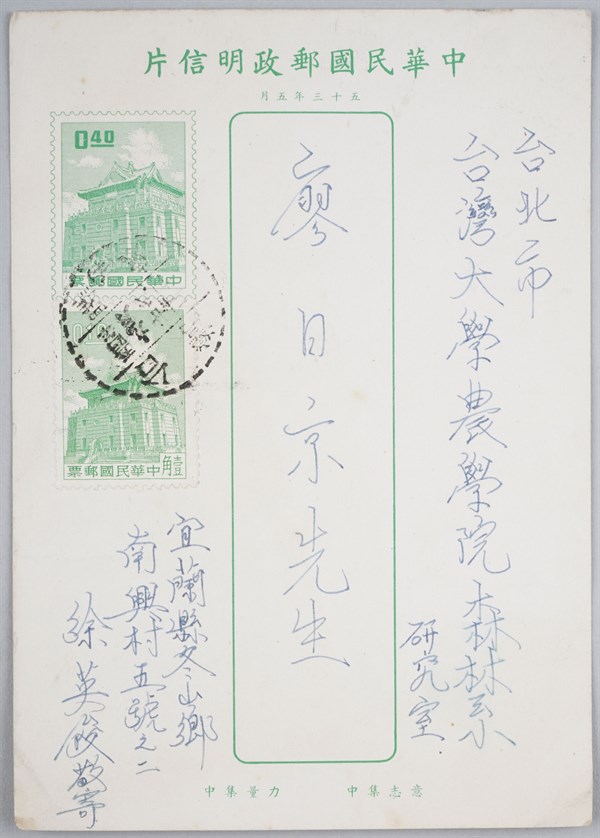 中華民國郵政明信片
五十三年五月
台北市
台灣大學農學院森林系
研究室
廖日京先生
0 40
中華民國郵票
壹角
中華民國郵票
宜蘭縣冬山鄉
南興村五號之二
徐英俊敬寄
意志集中 力量集中